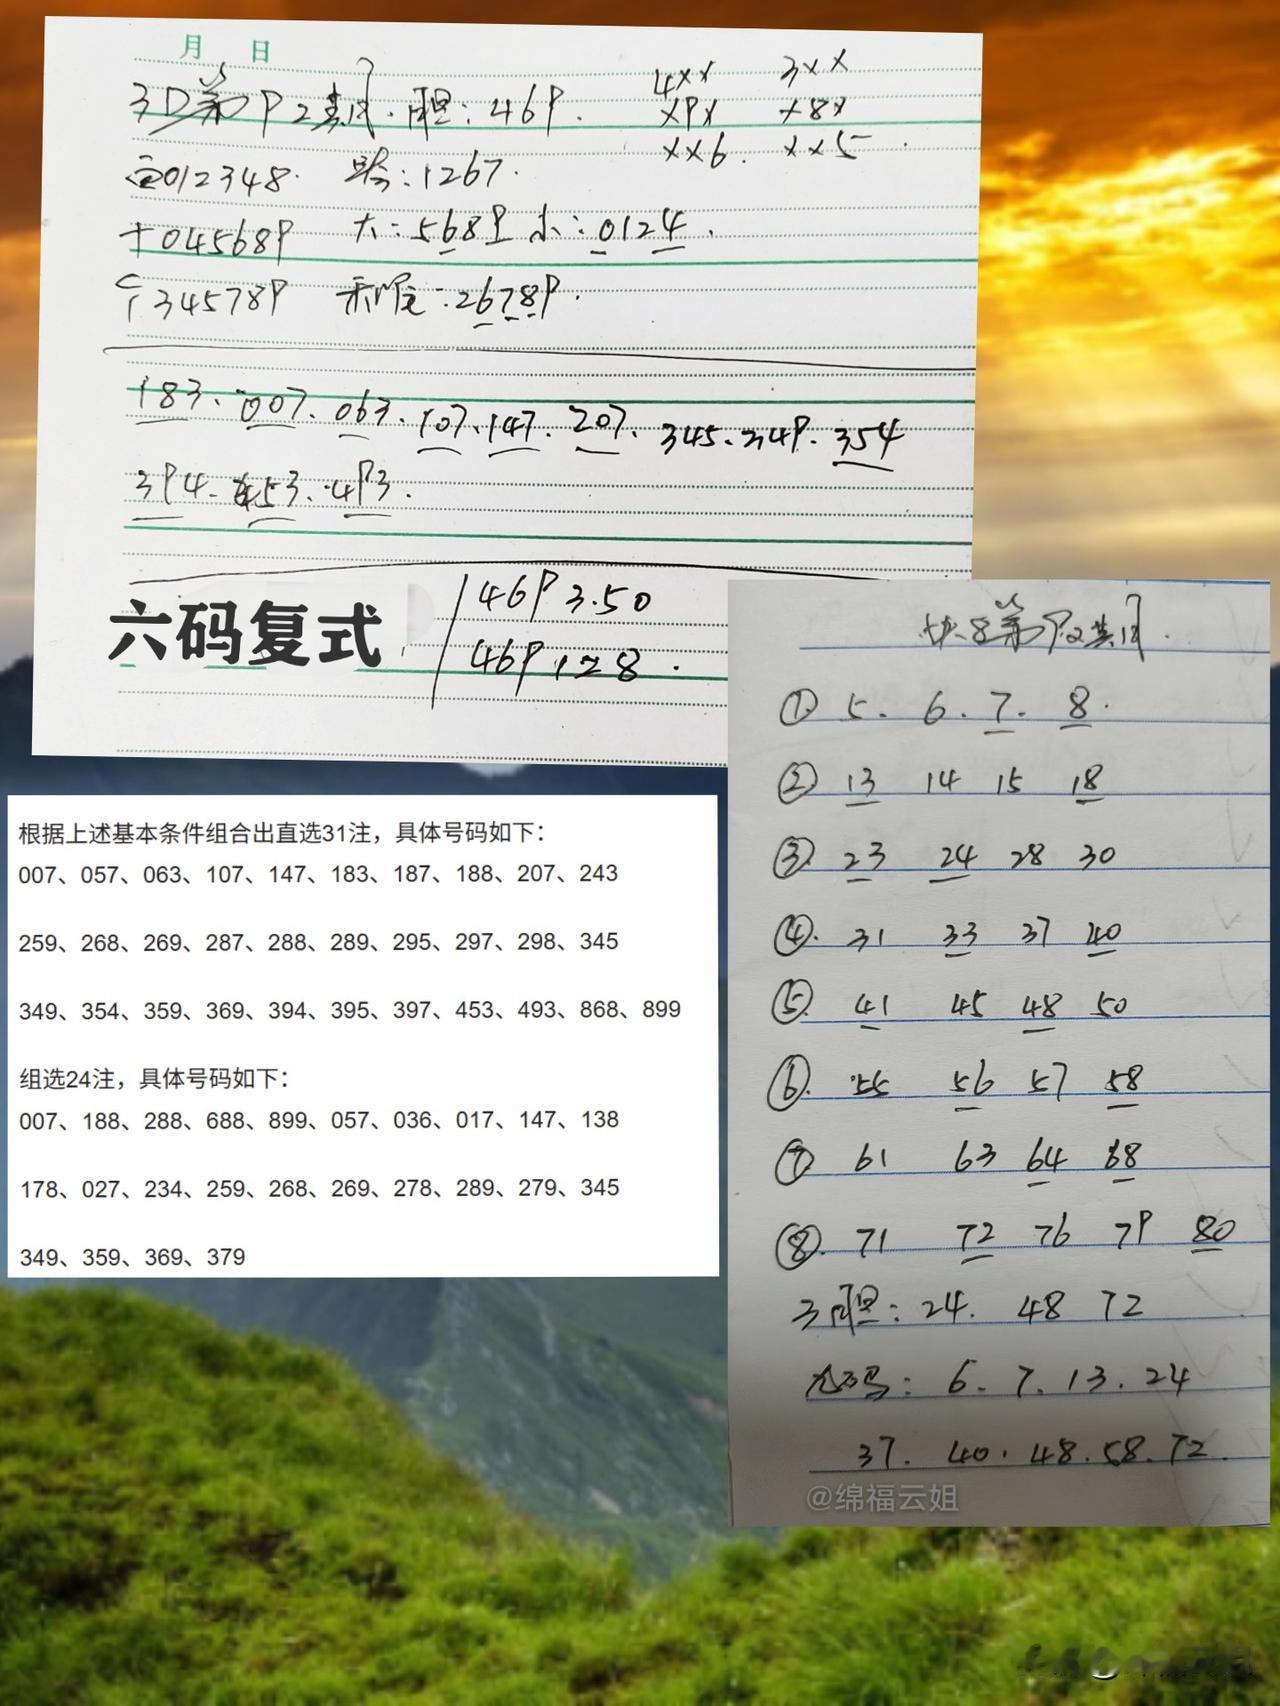 月 日
3D第92期.胆:469.
4×× 3××
×9× ×8×
××6. ××5.
百012348. 跨:1267.
十045689 大:5689 小:0124.
个345789 和尾:26789.
183.007.063.107.147.207.345.349.354
394.453.493.
六码复式
469 3.50
469.128.
根据上述基本条件组合出直选31注，具体号码如下：
007、057、063、107、147、183、187、188、207、243
259、268、269、287、288、289、295、297、298、345
349、354、359、369、394、395、397、453、493、868、899
组选24注，具体号码如下：
007、188、288、688、899、057、036、017、147、138
178、027、234、259、268、269、278、289、279、345
349、359、369、379
快8第92期.
①.5.6.7.8.
②.13 14 15 18
③.23 24 28 30
④.31 33 37 40
⑤.41 45 48 50
⑥.55 56 57 58
⑦ 61 63 64 68
⑧.71 72 76 79 80
3胆:24.48 72
九码:6.7.13.24
37.40.48.58.72.
@绵福云姐